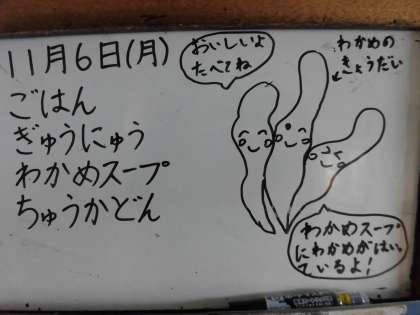 11月6日(月)
ごはん
ぎゅうにゅう
わかめスープ
ちゅうかどん
おいしいよ
たべてね
わかめの
きょうだい
わかめスープ
にわかめがはいっ
ているよ!